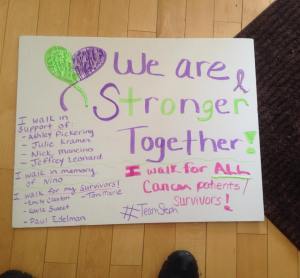 We are
Stronger
Together!
I walk in
Support of:
- Ashley Pickering
- Julie Kramer
- Nick Mancino
- Jeffrey Leonard
I walk in memory
of Nino
I walk for my Survivors!
- Emily Claxton - Tom Marie
- Carla Sweet
- Paul Edelman
I walk for ALL
Cancer patients/
Survivors!
#TeamSteph